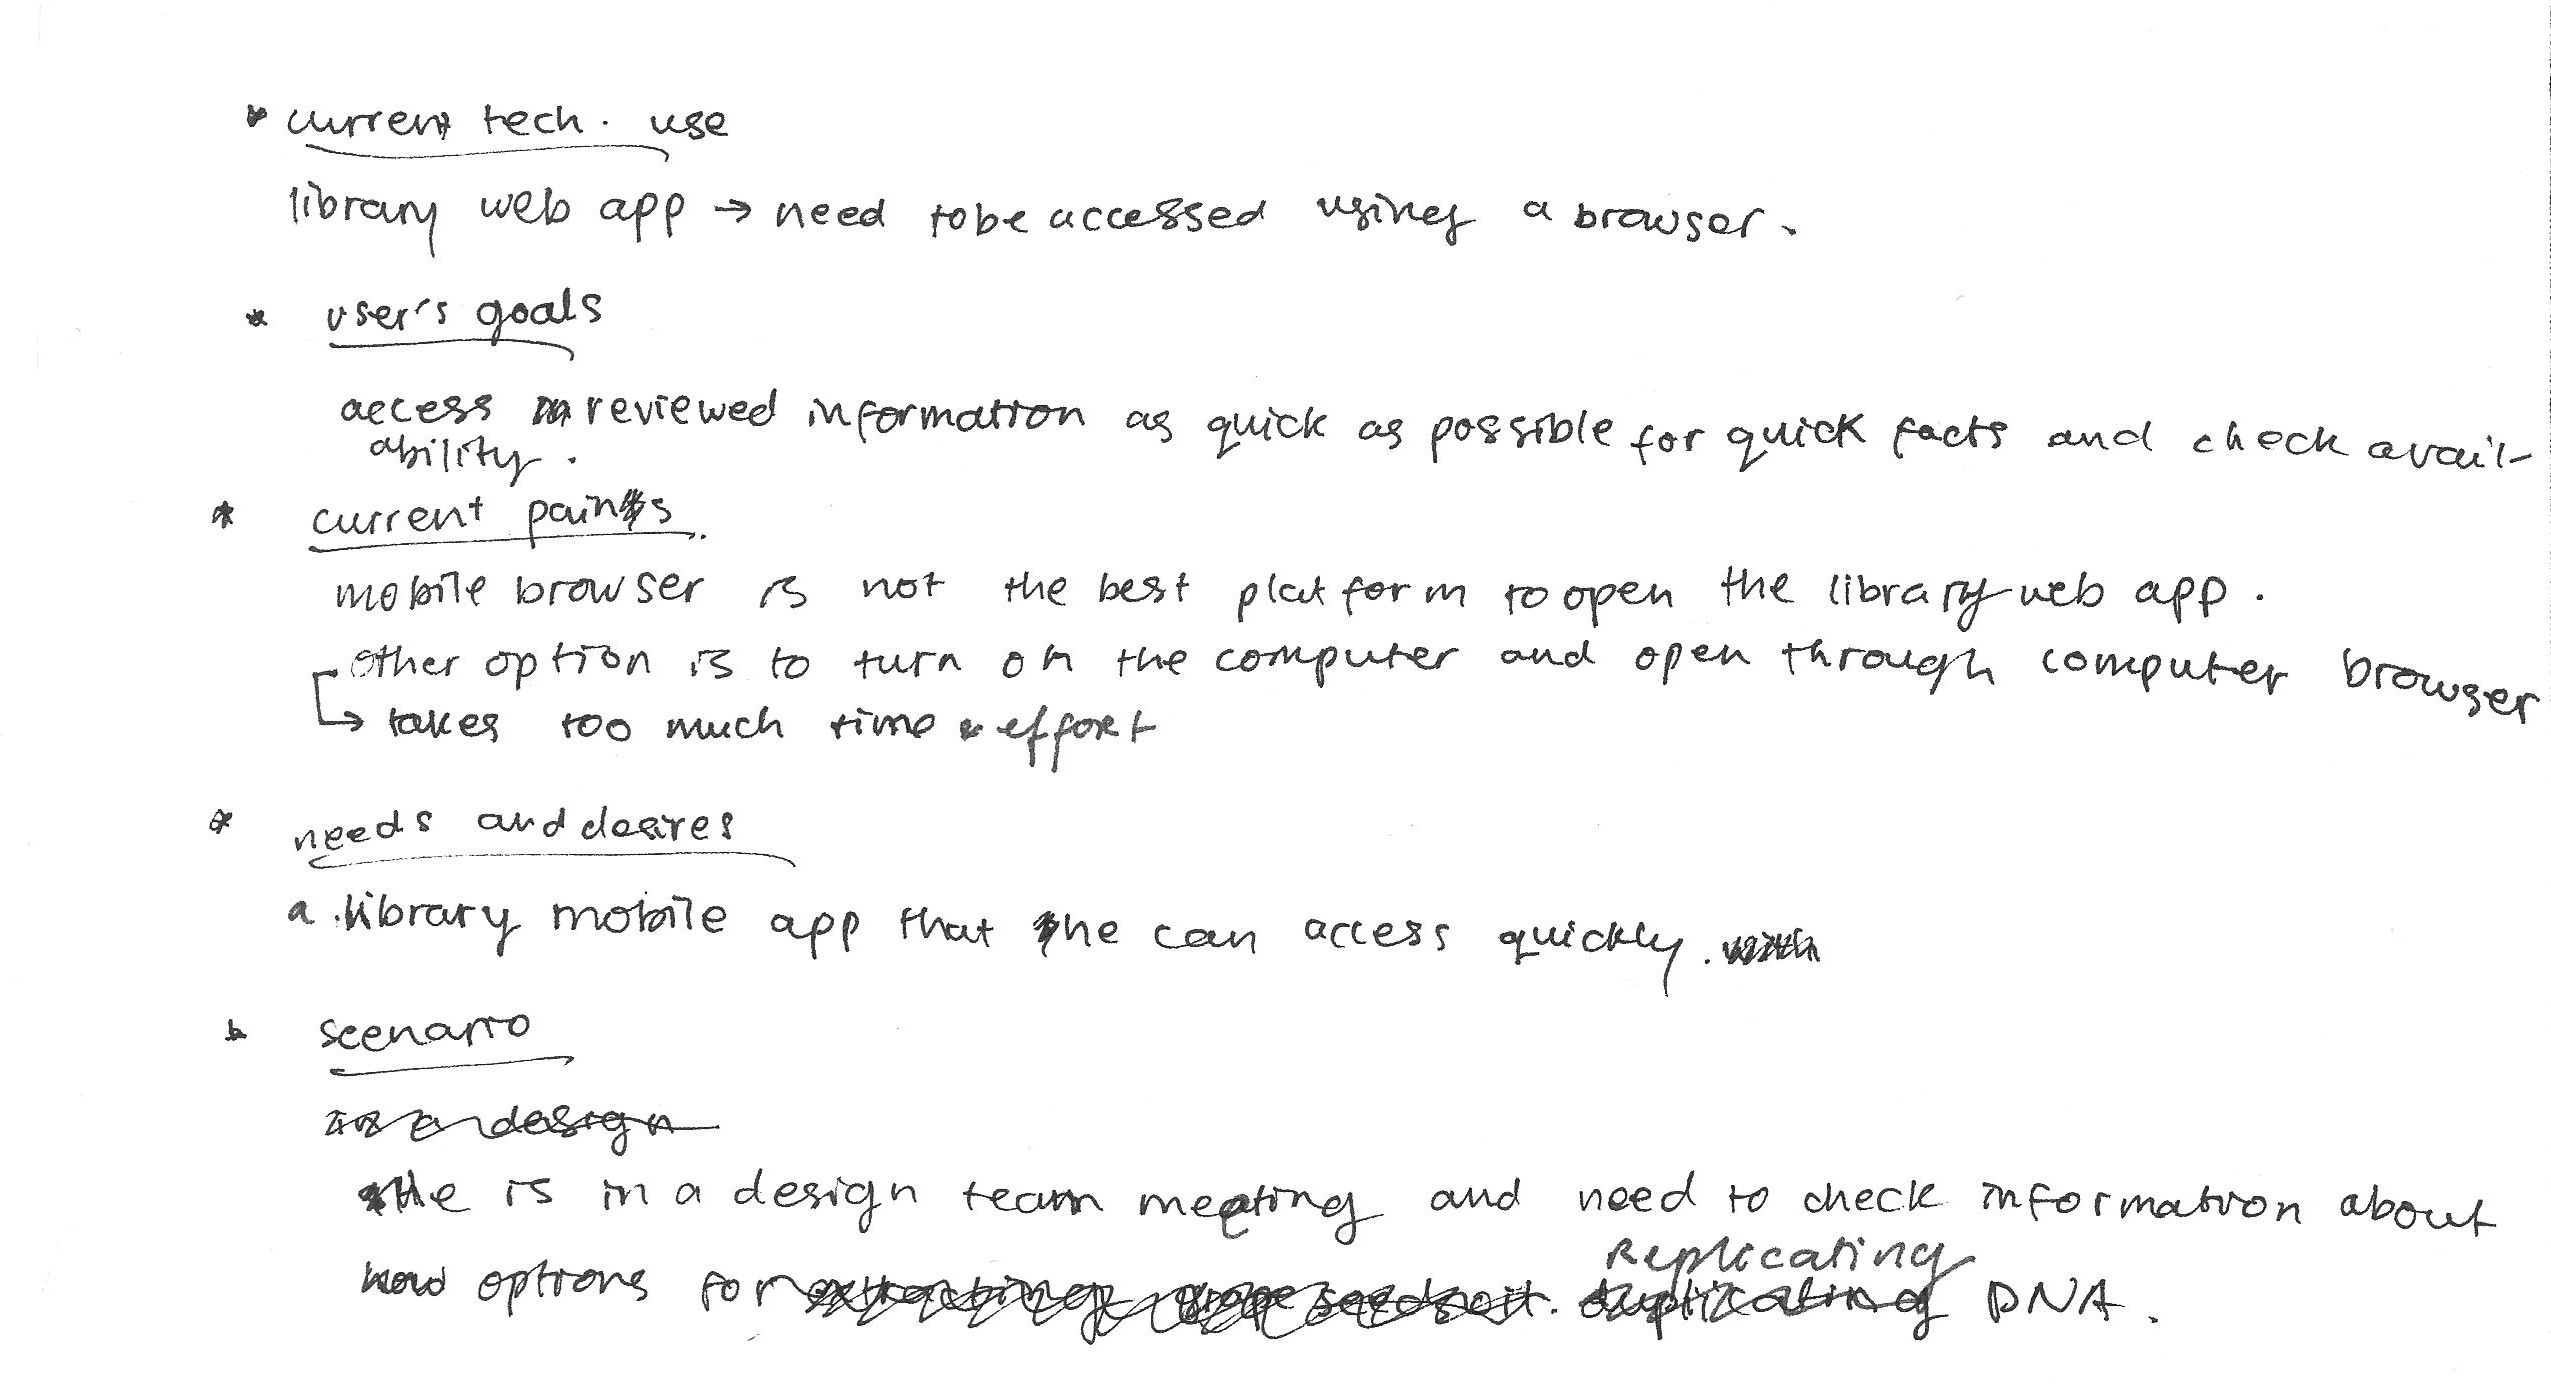 * current tech. use
library web app → need to be accessed using a browser.
* user's goals
access reviewed information as quick as possible for quick facts and check avail-
ability.
* current pains.
mobile browser is not the best platform to open the library web app.
other option is to turn on the computer and open through computer browser
↳ takes too much time & effort
* needs and desires
a library mobile app that he can access quickly.
* scenario
in a design
He is in a design team meeting and need to check information about
Replicating
options for extracting grape seeds oil. duplicating DNA.